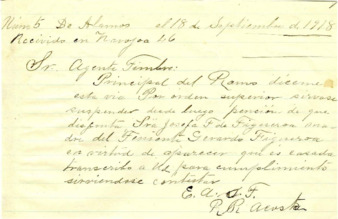 Núm 5 De Alamos el 18 de Septiembre d 1918
Recivido en Navojoa 46
Sr. Agente Timbre:
Principal del Ramo díceme
esta via Por orden superior sirvase
suspender desde luego pensión de que
disfruta Sra Josefa F de Figueroa
del Teniente Gerardo Figueroa
en virtud de aparecer que es casada
transcribo a Ud para cumplimiento
sirviendose contestar
E. A. d. F.
R. R. Acosta